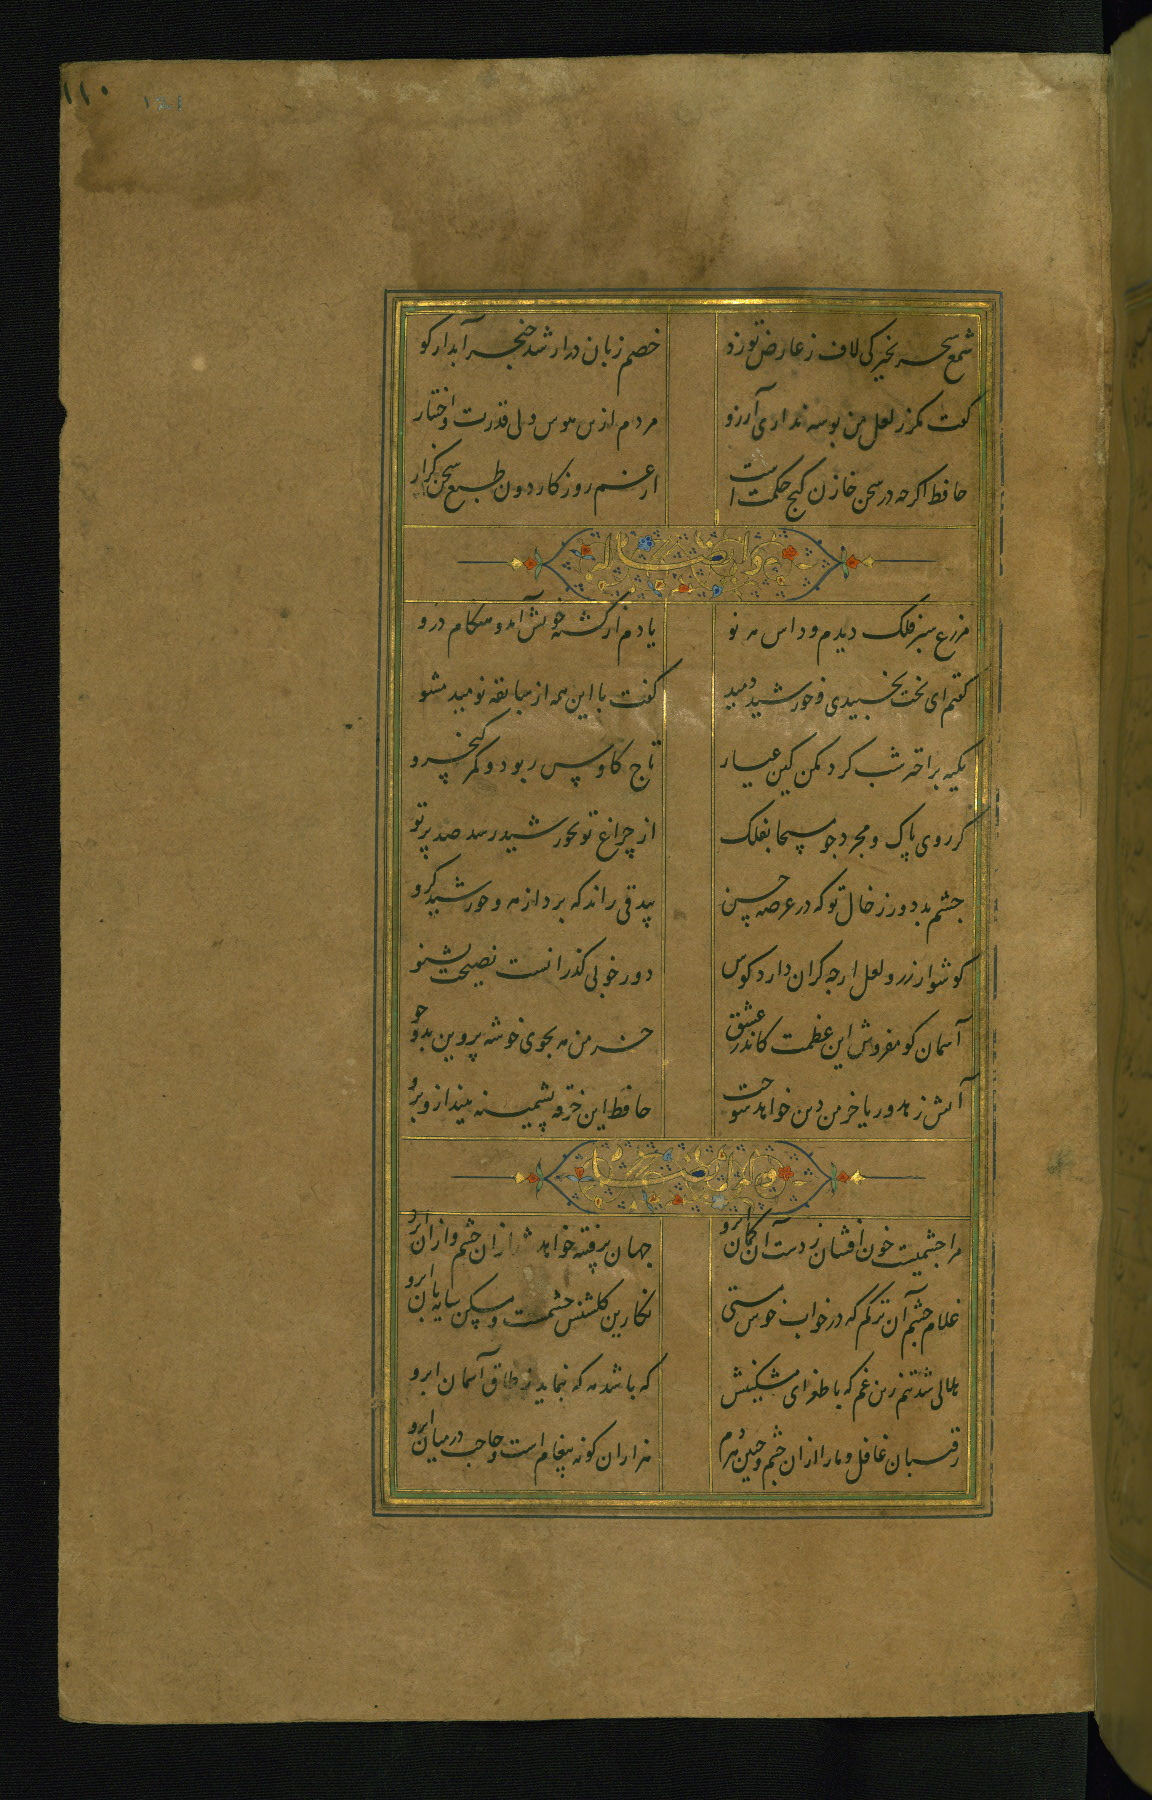 ۱۱۰
شمع سحر بخیرکی لاف ز عارض تو زد خصم زبان دراز شد خنجر آبدار کو
کفت مکر ز لعل من بوسه نداری آرزو مردم ازین هوس ولی قدرت و اختیار
حافظ اکرچه در سخن خازن کنج حکمت است از غم روزکار دون طبع سخن کزار
وله ایضا
مزرع سبز فلک دیدم و داس مه نو یادم از کشته خویش آمد و هنکام درو
کفتم ای بخت بخسبیدی و خورشید دمید کفت با این همه از سابقه نومید مشو
تکیه بر اختر شب کرد مکن کین عیار تاج کاوس ربود و کمر کیخسرو
کر روی پاک و مجرد چو مسیحا بفلک از چراغ تو بخورشید رسد صد پرتو
چشم بد دور ز خال تو که در عرصه حسن بیدقی راند که برد از مه و خورشید کرو
کوشوار زر و لعل ارچه کران دارد کوش دور خوبی کذرانست نصیحت بشنو
آسمان کو مفروش این عظمت کاندر عشق خرمن مه بجوی خوشه پروین بدو جو
آتش زهد و ریا خرمن دین خواهد سوخت حافظ این خرقه پشمینه بینداز و برو
وله ایضا
مرا چشمیست خون افشان ز دست آن کمان ابرو جهان پر فتنه خواهد شد از ان چشم و از ان ابرو
غلام چشم آن ترکم که در خواب خوش مستی نکارین کلشنش چشمست و مسکین سایه بان ابرو
هلالی شد تنم زین غم که با طغرای مشکینش که باشد مه که بنماید ز طاق آسمان ابرو
رقیبان غافل و ما را از ان چشم و جبین هر دم هزاران کونه پیغام است و حاجب در میان ابرو